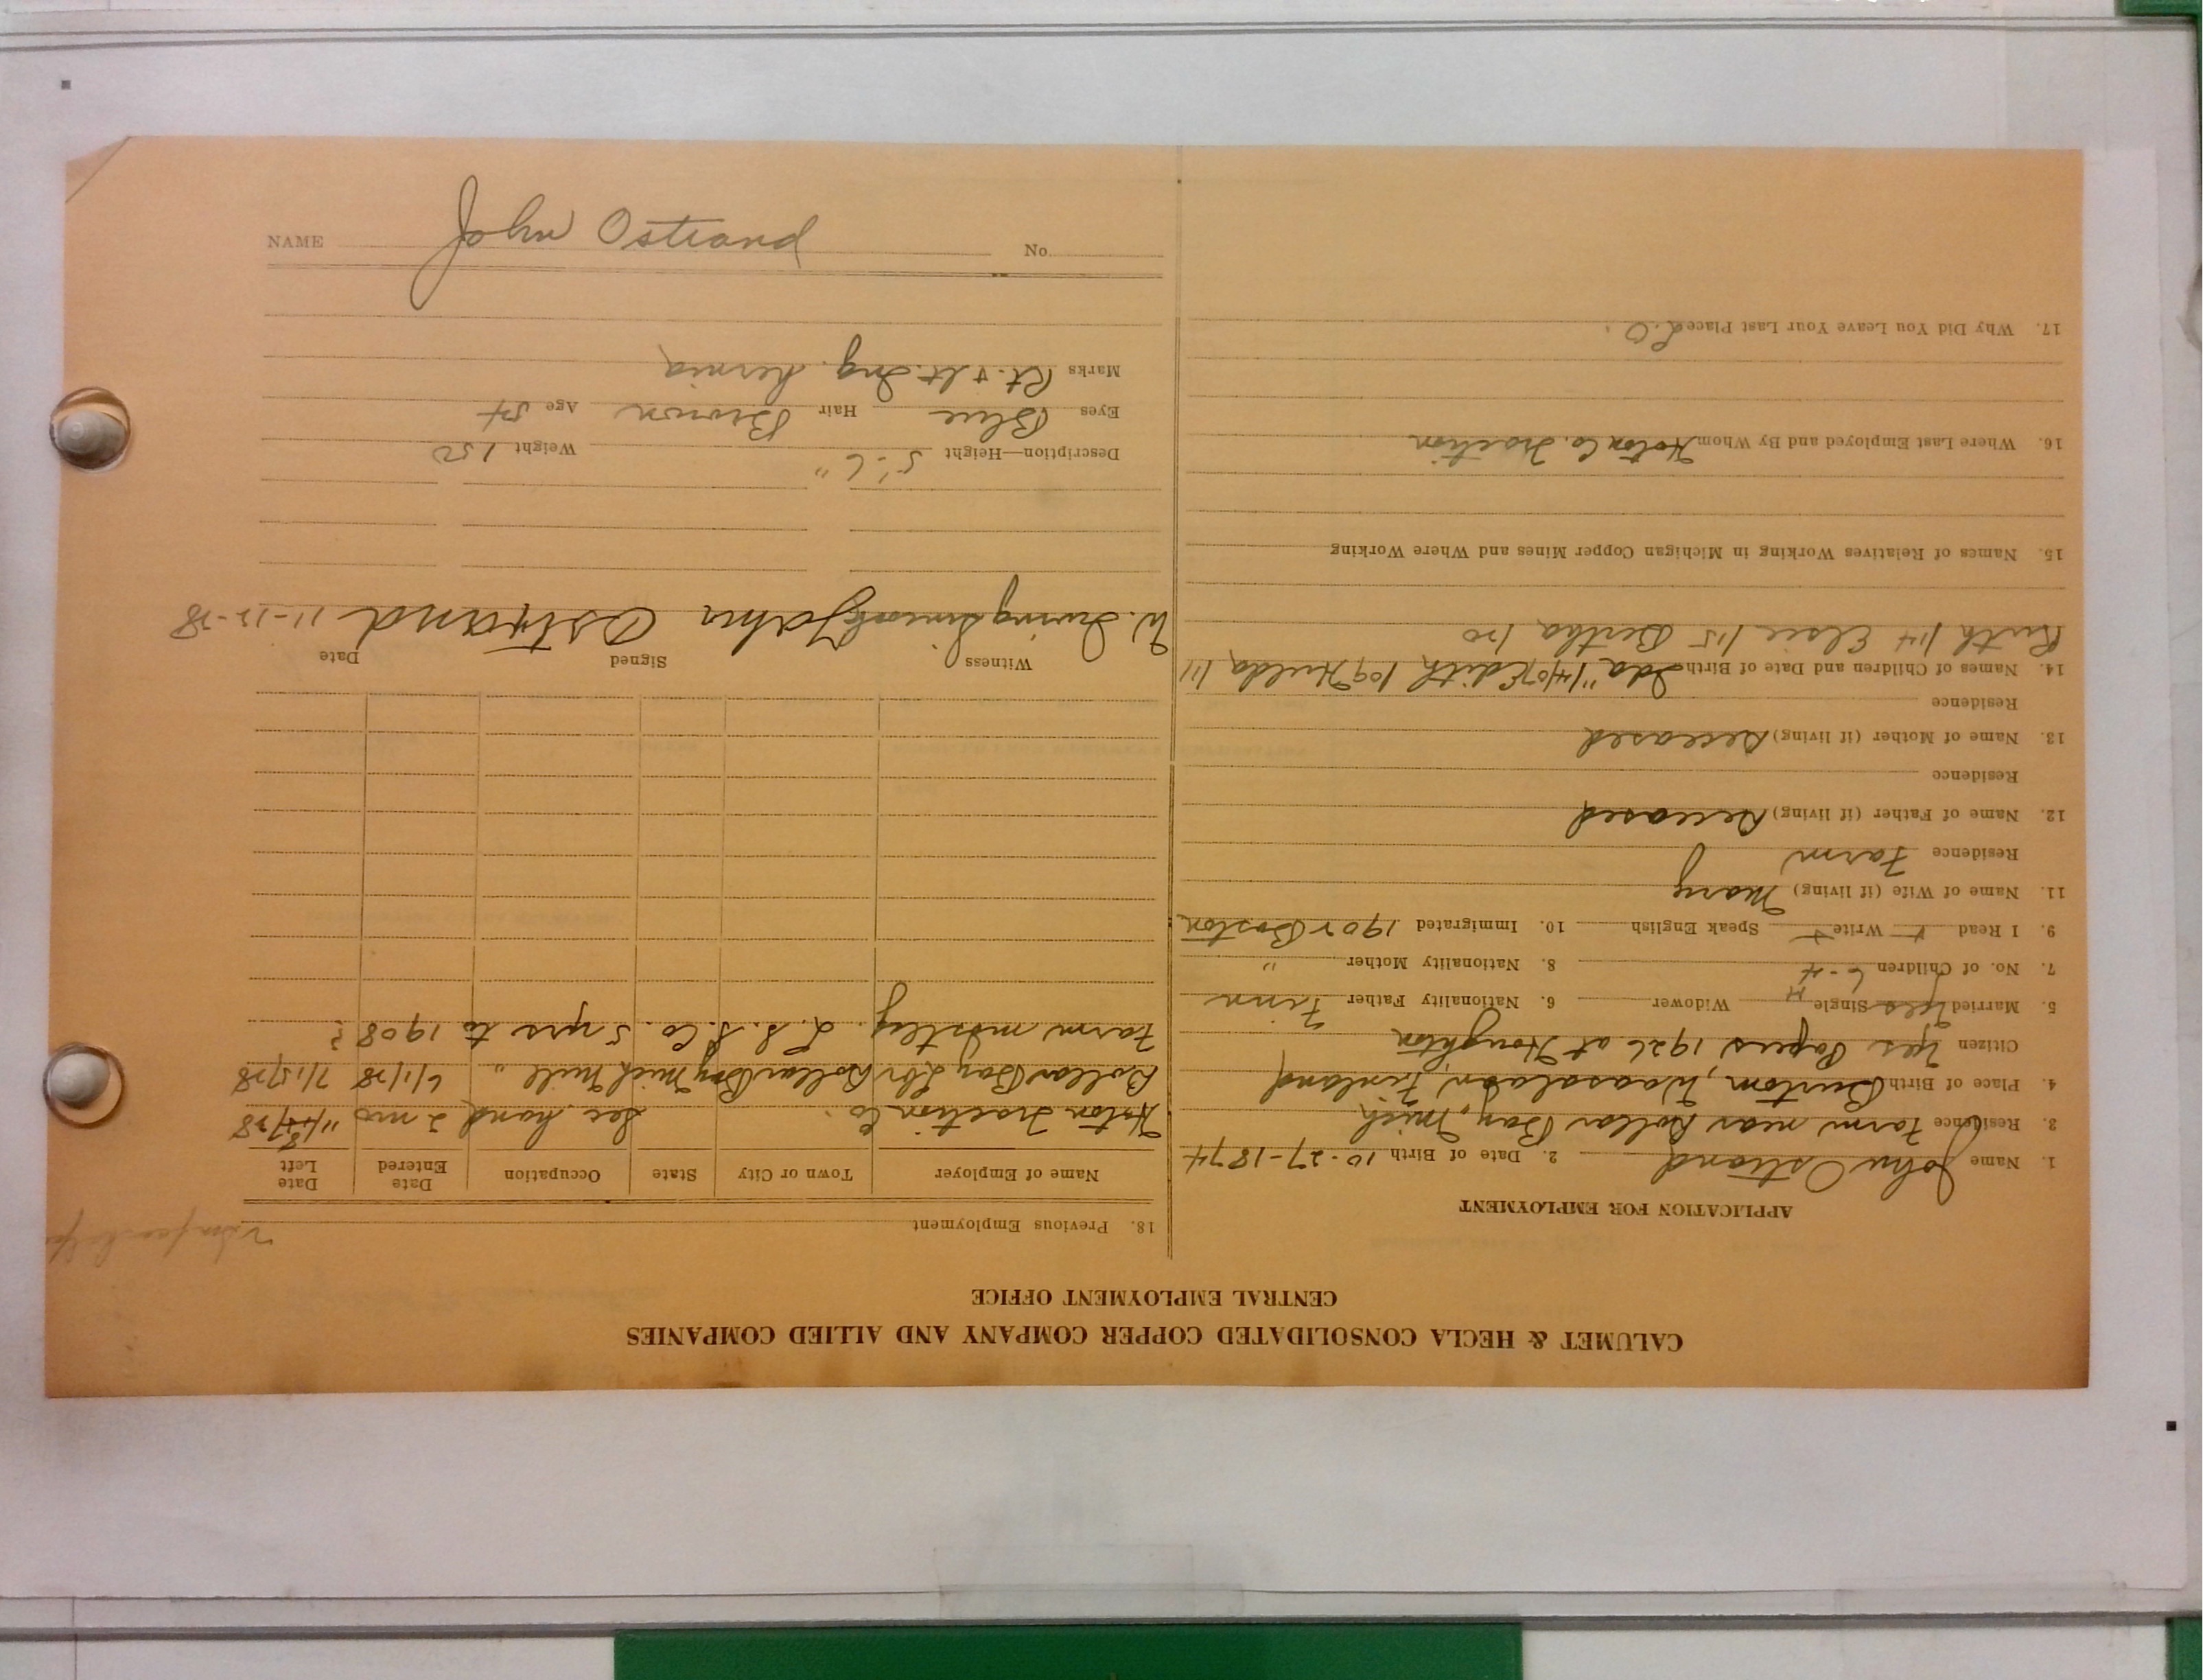 CALUMET & HECLA CONSOLIDATED COPPER COMPANY AND ALLIED COMPANIES
CENTRAL EMPLOYMENT OFFICE
APPLICATION FOR EMPLOYMENT
1. Name John Ostrand 2. Date of Birth 10-27-1874
3. Residence Farm near Dollar Bay, Mich
4. Place of Birth Finland
Citizen Yes Papers 1926 at Houghton
5. Married Yes Single M Widower 6. Nationality Father Finn
7. No. of Children 6-4 8. Nationality Mother "
9. I Read + Write + Speak English 10. Immigrated 1902 Boston
11. Name of Wife (if living) Mary
Residence Farm
12. Name of Father (if living) Deceased
Residence
13. Name of Mother (if living) Deceased
Residence
14. Names of Children and Date of Birth Ida Edith /09 Hulda /11
Ruth /14 Elsie /15 Bertha /20
15. Names of Relatives Working in Michigan Copper Mines and Where Working
16. Where Last Employed and By Whom Hoton Co. Traction
17. Why Did You Leave Your Last Place L.O.
18. Previous Employment
Name of Employer Town or City State Occupation Date Entered Date Left
Hoton Traction Co. Sec. hand 2 mo
Dollar Bay Lbr Dollar Bay Mich Mill " 6/1/28 7/15/28
Farm mostly. L. S. S. Co. 5 yrs to 1908?
Witness Signed Date
W. Irving John Ostrand 11-12-28
Description—Height 5'-6" Weight 150
Eyes Blue Hair Brown Age 54
Marks Rt. & lt. Ing. hernia
NAME John Ostrand No.